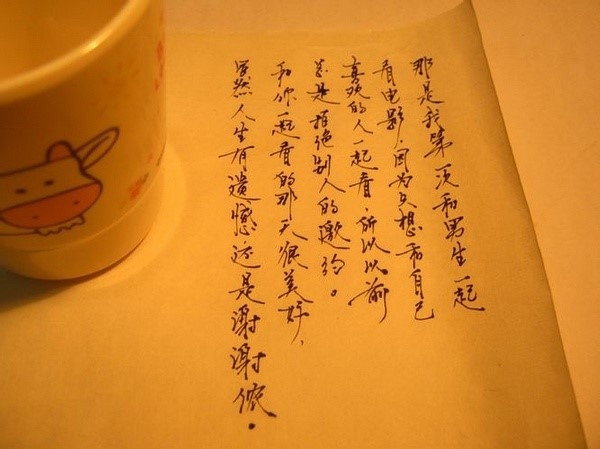 那是我第一次和男生一起
看电影，因为只想和自己
喜欢的人一起看，所以以前
总是拒绝别人的邀约。
和你一起看的那天很美好，
虽然人生有遗憾还是谢谢侬。